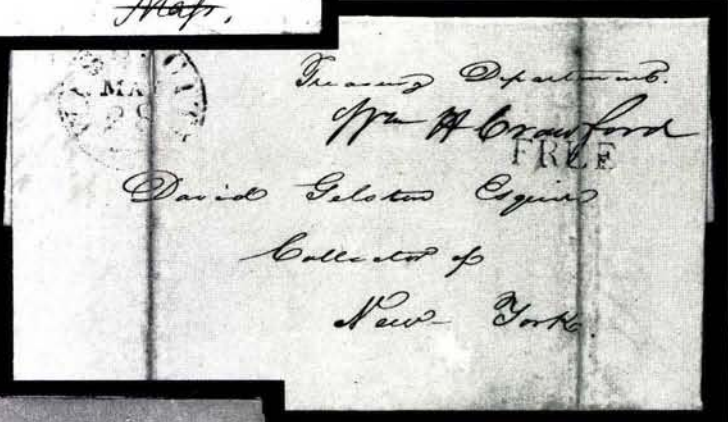 Mass.
MA
28
Treasury Department.
Wm H Crawford
FREE
David Gelston Esquire
Collector of
New-York.